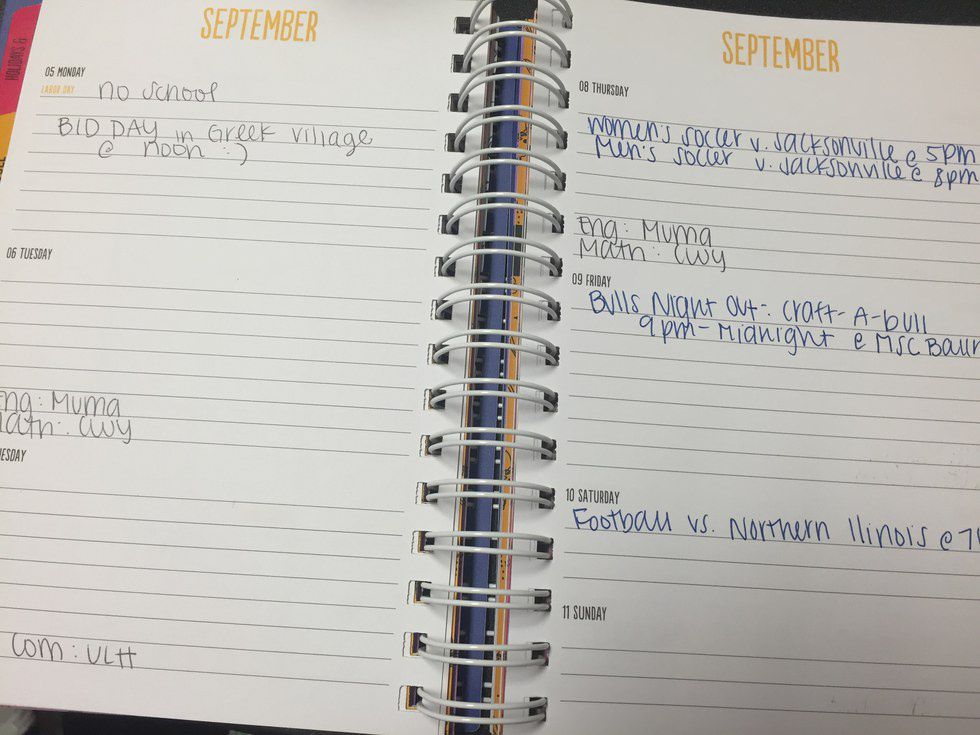 HOLIDAYS &
SEPTEMBER
05 MONDAY
LABOR DAY no school
BID DAY in Greek Village
@ noon :)
06 TUESDAY
Eng: Muma
Math: CWY
ESDAY
Com: ULH
SEPTEMBER
08 THURSDAY
Women's soccer v. Jacksonville @ 5pm
Men's soccer v. Jacksonville @ 8pm
Eng: Muma
Math: CWY
09 FRIDAY
Bulls Night Out: Craft-A-bull
9pm-Midnight @ MSC Ballr
10 SATURDAY
Football vs. Northern Illinois @ 7
11 SUNDAY